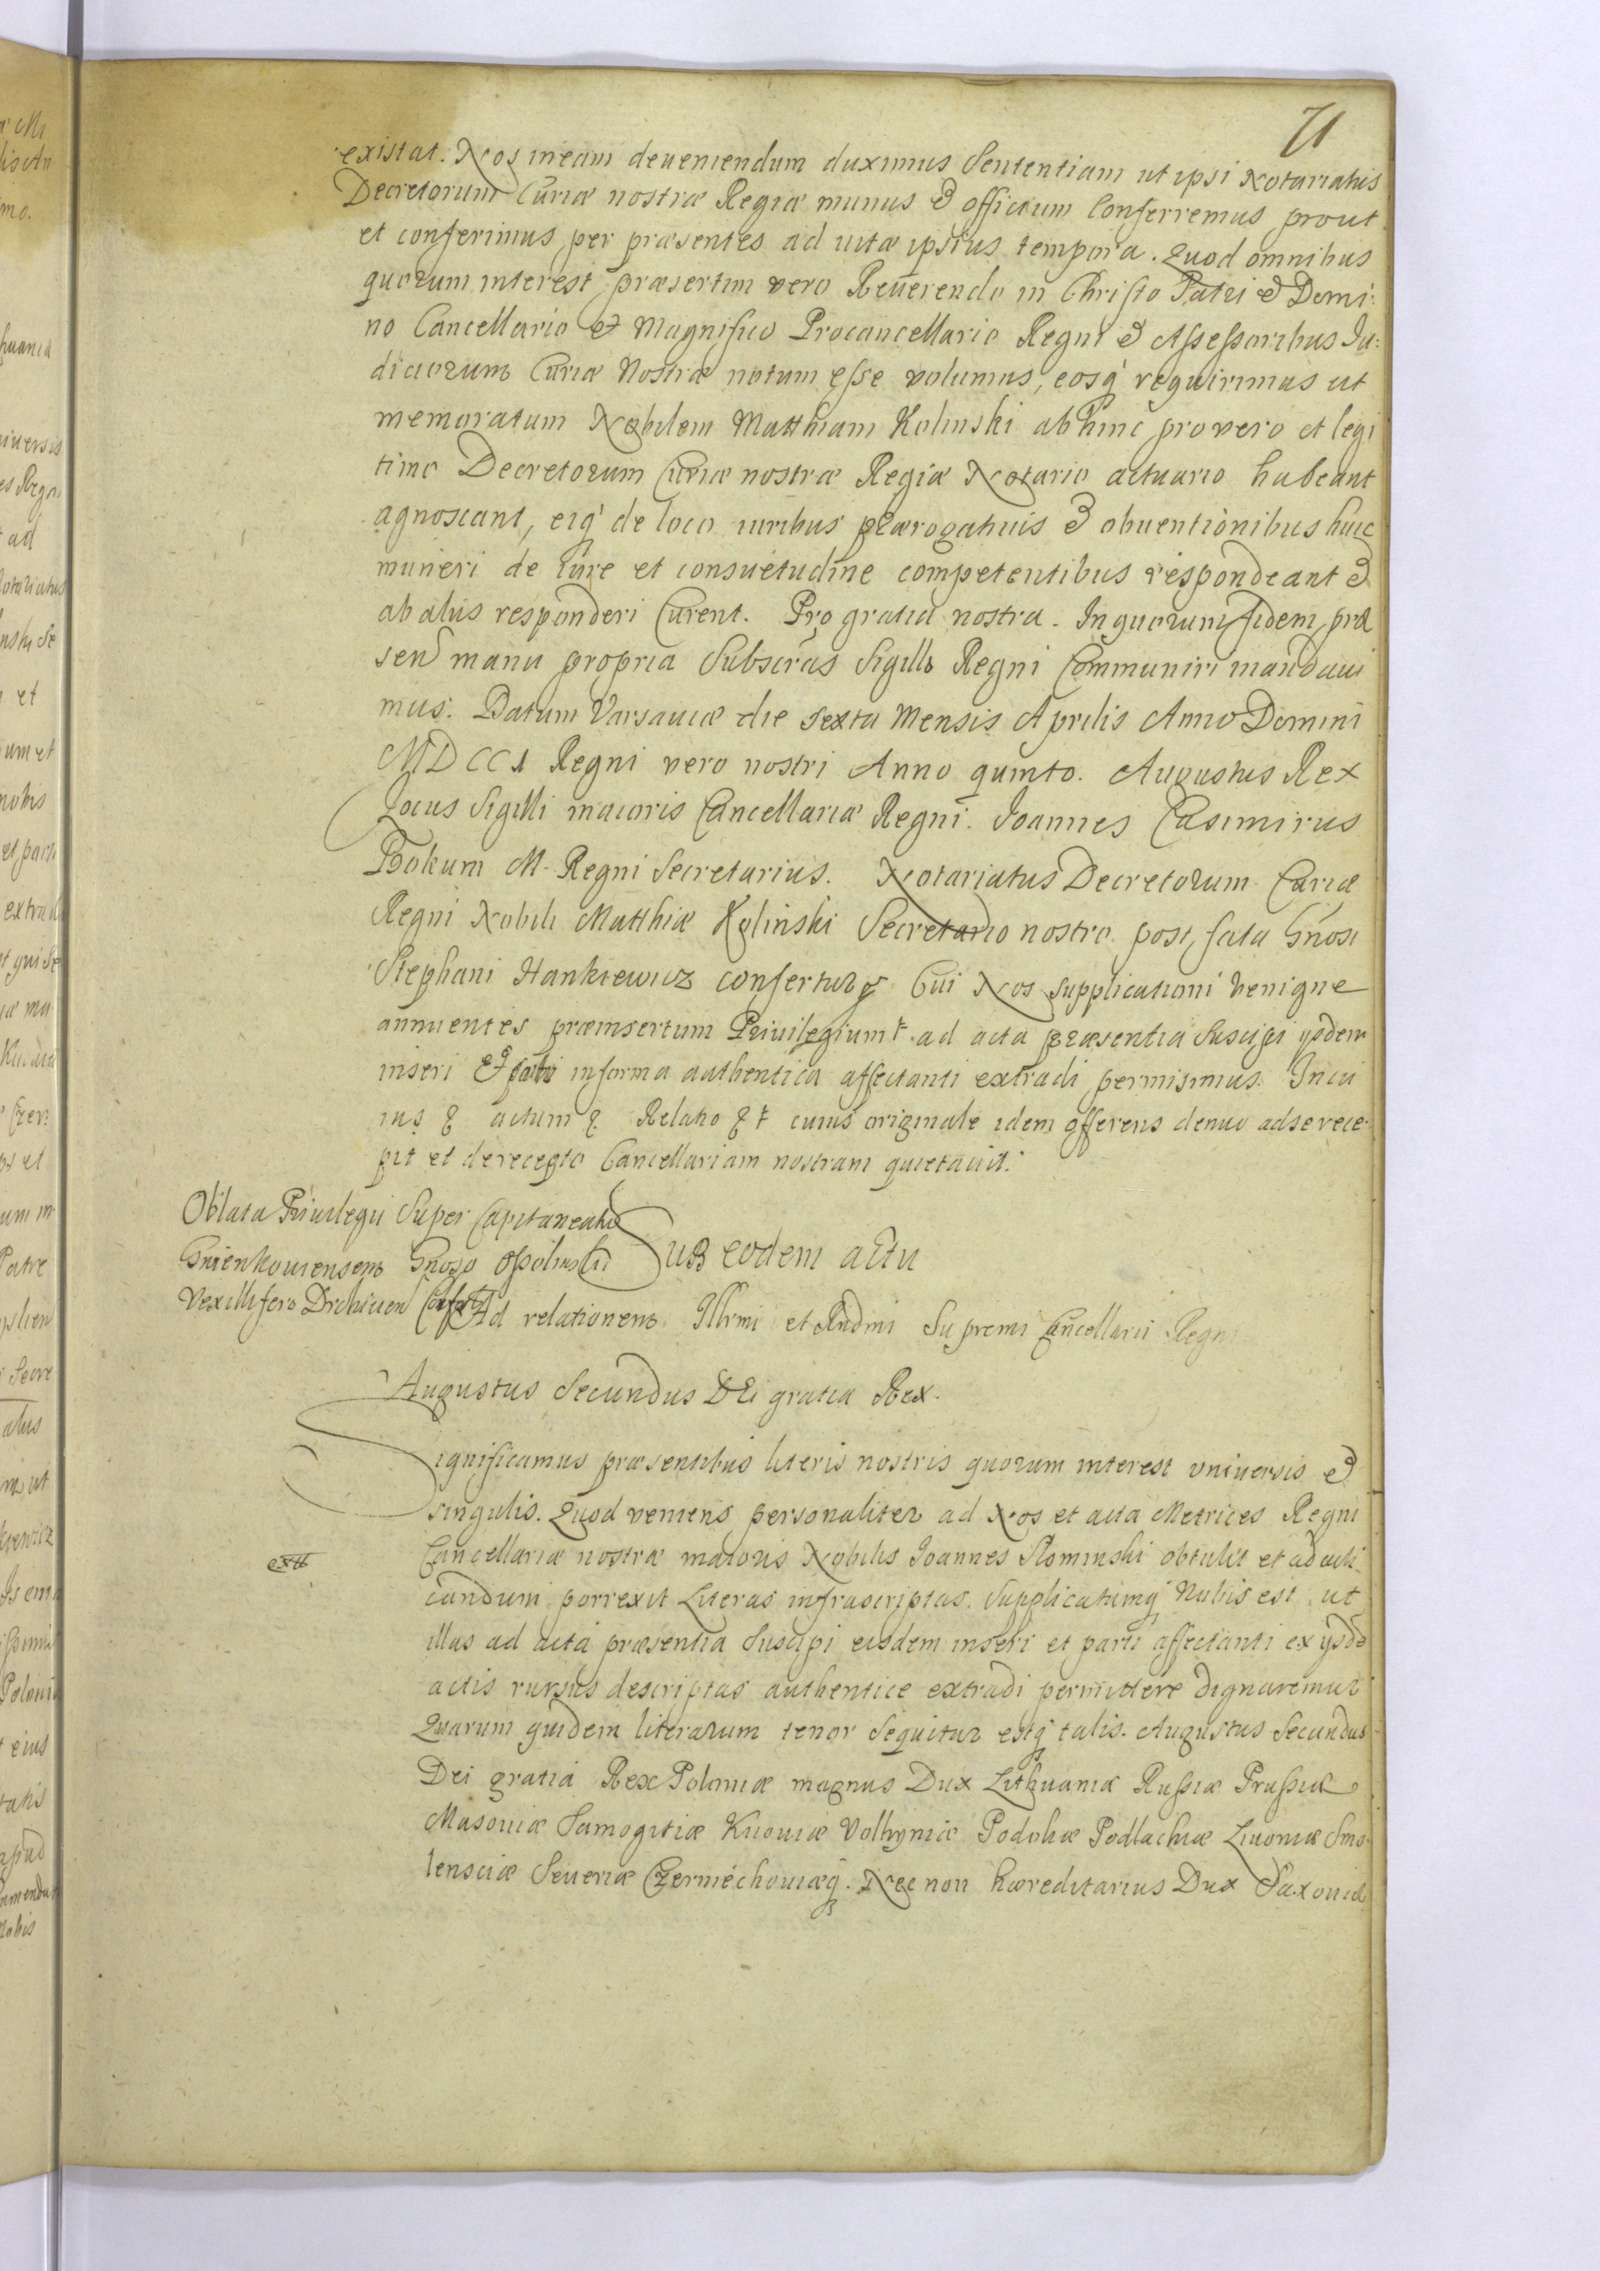 71
existat. Nos in eam deueniendum duximus Sententiam ut ipsi Notariatus
Decretorum Curiæ nostræ Regiæ munus & officium Conferremus prout
et conferimus per præsentes ad uitæ ipsius tempora. Quod omnibus
quorum interest præsertim vero Reuerendo in Christo Patri & Domi:
no Cancellario et Magnifico Procancellario Regni & Assessoribus Iu:
diciorum Curiæ Nostræ notum esse volumus, eosq' requirimus ut
memoratum Nobilem Matthiam Kolinski abhinc pro vero et legi
timo Decretorum Curiæ nostræ Regiæ Notario actuario habeant
agnoscant, eiq' de loco iuribus prærogatiuis & obuentionibus huic
muneri de Iure et consuetudine competentibus respondeant &
ab alijs responderi Curent. Pro gratia nostra. In quorum fidem præ
sen manu propria Subscras Sigillo Regni Communiri mandaui
mus. Datum Varsauiæ die sexta Mensis Aprilis Anno Domini
MDCCI Regni vero nostri Anno quinto. Augustus Rex
Locus Sigilli maioris Cancellariæ Regni. Ioannes Casimirus
Bokum M. Regni Secretarius. Notariatus Decretorum Curiæ
Regni Nobili Matthiæ Kolinski Secretario nostro post fata Gnosi
Stephani Hankiewicz confertur Cui Nos supplicationi benigne
annuentes præinsertum Priuilegium ad acta præsentia Suscipi ijsdem
inseri Et parti in forma authentica affectanti extradi permisimus. In cu
ius actum Relatio cuius originale idem offerens denuo ad se rece
pit et de recepto Cancellariam nostram quietauit.
Oblata Priuilegii Super Capitaneatu
Gniewkouiensem Gnoso Opolinski
Vexillifero Drohicien Confert
Sub eodem actu
Ad relationem Illrmi et Rndmi Supremi Cancellarii Regni
Augustus Secundus DEi gratia Rex.
Significamus præsentibus literis nostris quorum interest vniuersis &
singulis. Quod veniens personaliter ad Nos et acta Metrices Regni
Cancellariæ nostræ maioris Nobilis Ioannes Slominski obtulit et ad acti
extt
candum porrexit Literas infrascriptas. Supplicatumq' Nobis est ut
illas ad acta præsentia Suscipi eisdem inseri et parti affectanti ex ijsde
actis rursus descriptas authentice extradi permittere dignaremur
Quarum quidem literarum tenor Sequitur estq' talis. Augustus Secundus
Dei gratia Rex Poloniæ magnus Dux Lithuaniæ Russiæ Prussiæ
Masouiæ Samogitiæ Kiiouiæ Volhyniæ Podoliæ Podlachiæ Liuoniæ Smo
lensciæ Seueriæ Czerniechouiæq'. Nec non hæreditarius Dux Saxoniæ